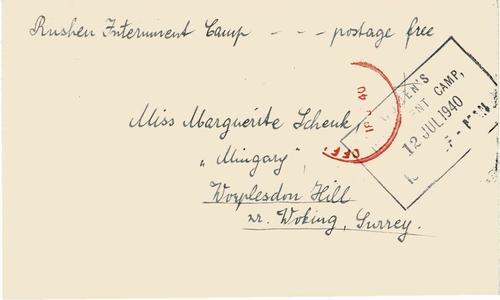 Rushen Internment Camp - - - postage free
WOMEN'S
INTERNMENT CAMP,
12 JUL 1940
40
OFF
Miss Marguerite Schenk,
„Mingary",
Worplesdon Hill
nr. Woking, Surrey.